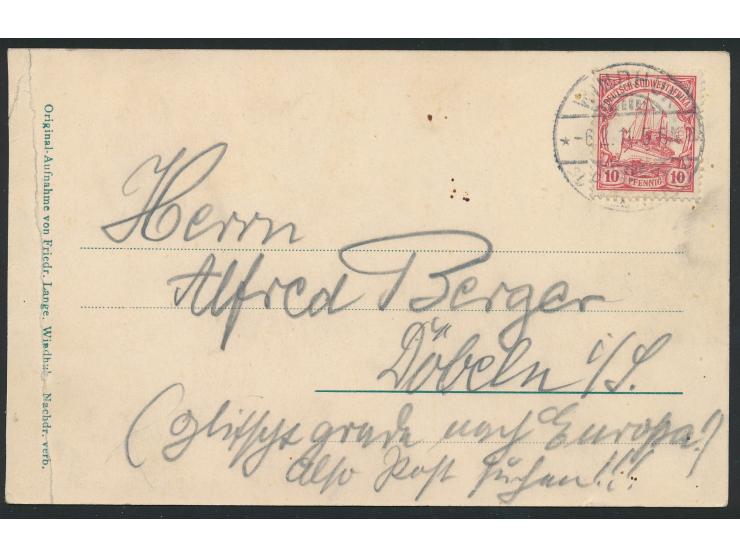 Original-Aufnahme von Friedr. Lange, Windhuk Nachdr. verb.
WINDHUK
DEUTSCH-SÜDWESTAFRIKA
10 PFENNIG 10
Herrn
Alfred Berger
Döbeln i/S.
grade nach Europa!)
Also Post suchen!!!